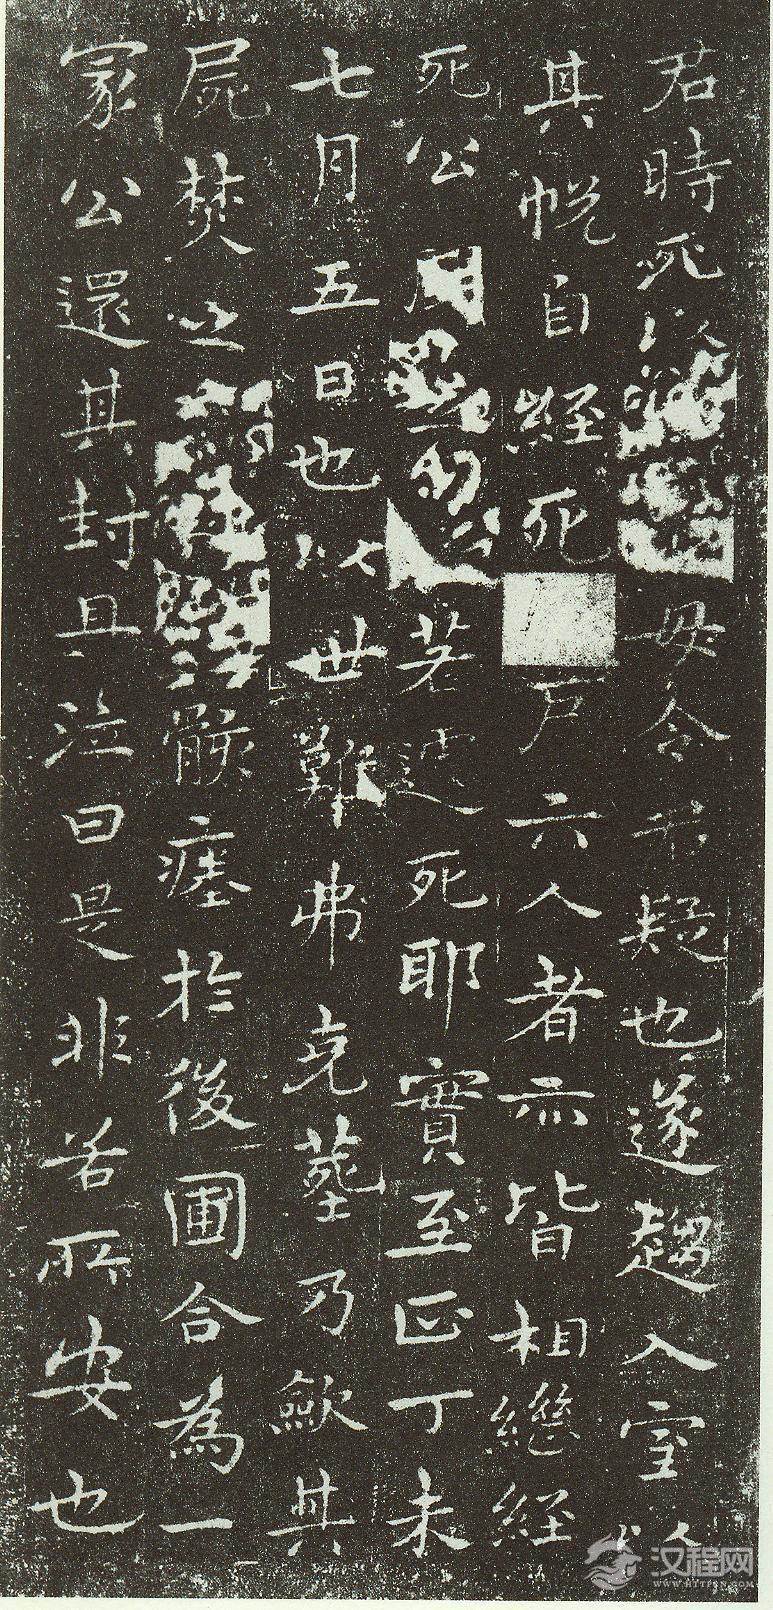 君時死以毋令君疑也遂趨入室以
其帨自經死戶六人者亦皆相繼經
死公若遽死耶實至正丁未
七月五日也以世難弗克葬乃歛其
屍焚之骸瘞於後圃合為一
冢公還其封且泣曰是非若所安也
汉程网
WWW.HTTPCN.COM